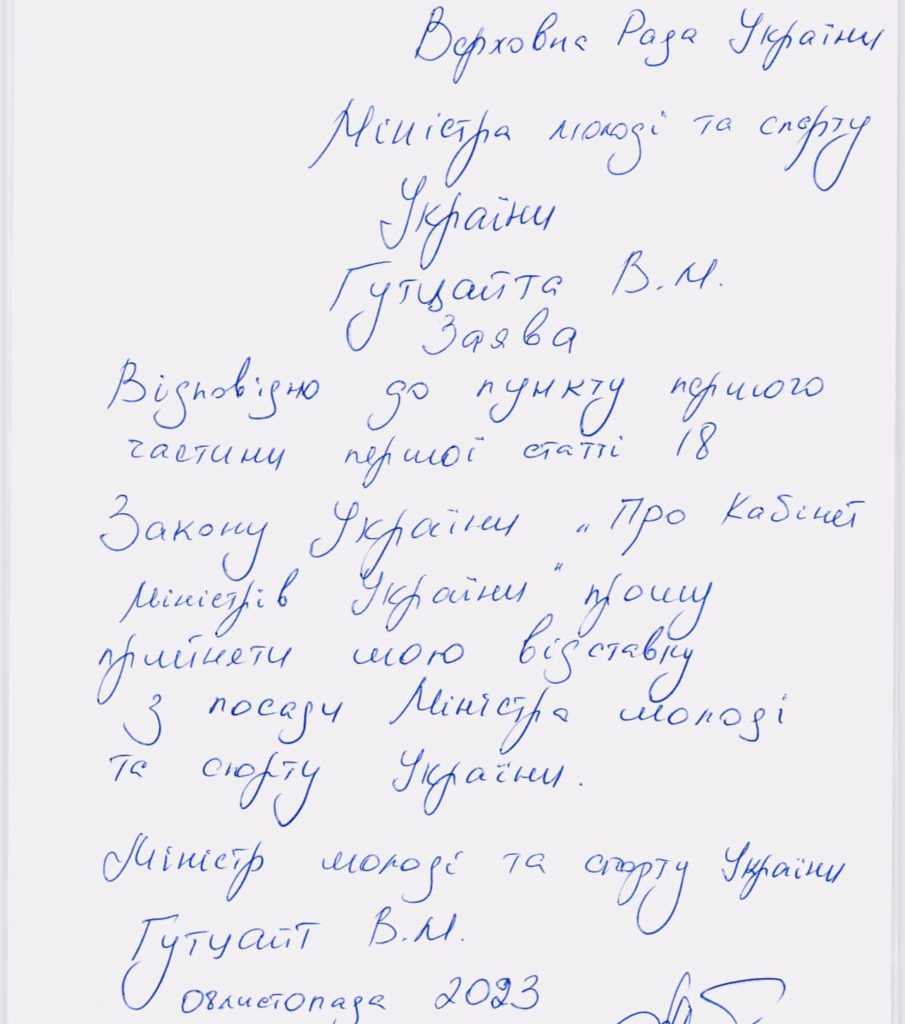 Верховна Рада України
Міністра молоді та спорту
України
Гутцайта В.М.
Заява
Відповідно до пункту першого
частини першої статті 18
Закону України „Про Кабінет
Міністрів України" прошу
прийняти мою відставку
з посади Міністра молоді
та спорту України.
Міністр молоді та спорту України
Гутцайт В.М.
08 листопада 2023